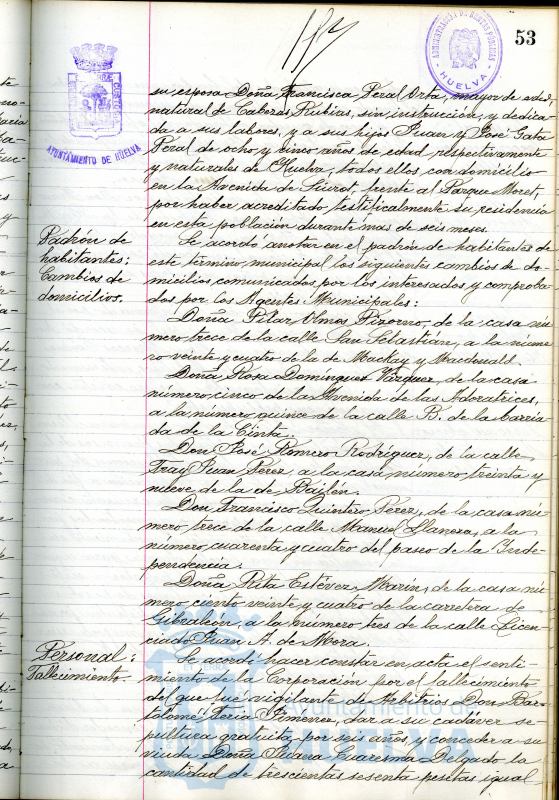 53
AYUNTAMIENTO DE HUELVA
HUELVA
su esposa Doña Francisca Peral Orta, mayor de edad
natural de Cabezas Rubias, sin instrucción, y dedica-
da a sus labores, y a sus hijos Juan y José Gata
Peral de ocho y cinco años de edad respectivamente
y naturales de Huelva, todos ellos con domicilio
en la Avenida de Seurot, frente al Parque Moret,
por haber acreditado testificalmente su residencia
en esta población durante mas de seis meses.
Padrón de
habitantes:
Cambios de
domicilios.
Se acordó anotar en el padrón de habitantes de
este término municipal los siguientes cambios de do-
micilios comunicados por los interesados y comproba-
dos por los Agentes Municipales:
Doña Pilar Olmos Pizorno, de la casa nú-
mero trece de la calle San Sebastián, a la núme-
ro veinte y cuatro de la de Mackay y Macdonald.
Doña Rosa Domínguez Vázquez, de la casa
número cinco de la Avenida de las Adoratrices,
a la número quince de la calle B. de la barria-
da de la Cinta.
Don José Romero Rodríguez, de la calle
Fray Juan Pérez a la casa número treinta y
nueve de la de Bailén.
Don Francisco Quintero Pérez, de la casa nú-
mero trece de la calle Manuel Llanera, a la
número cuarenta y cuatro del paseo de la Inde-
pendencia.
Doña Rita Estévez Marín, de la casa nú-
mero ciento veinte y cuatro de la carretera de
Gibraleón, a la número tres de la calle Licen-
ciado Juan A. de Mora.
Personal:
Fallecimiento.
Se acordó hacer constar en acta el senti-
miento de la Corporación por el fallecimiento
del que fué vigilante de Arbitrios Don Bar-
tolomé Feria Jimenez, dar a su cadaver se-
pultura gratuita por seis años y conceder a su
viuda Doña Juana Cuaresma Delgado la
cantidad de trescientas sesenta pesetas igual-
Ayuntamiento de
HUELVA